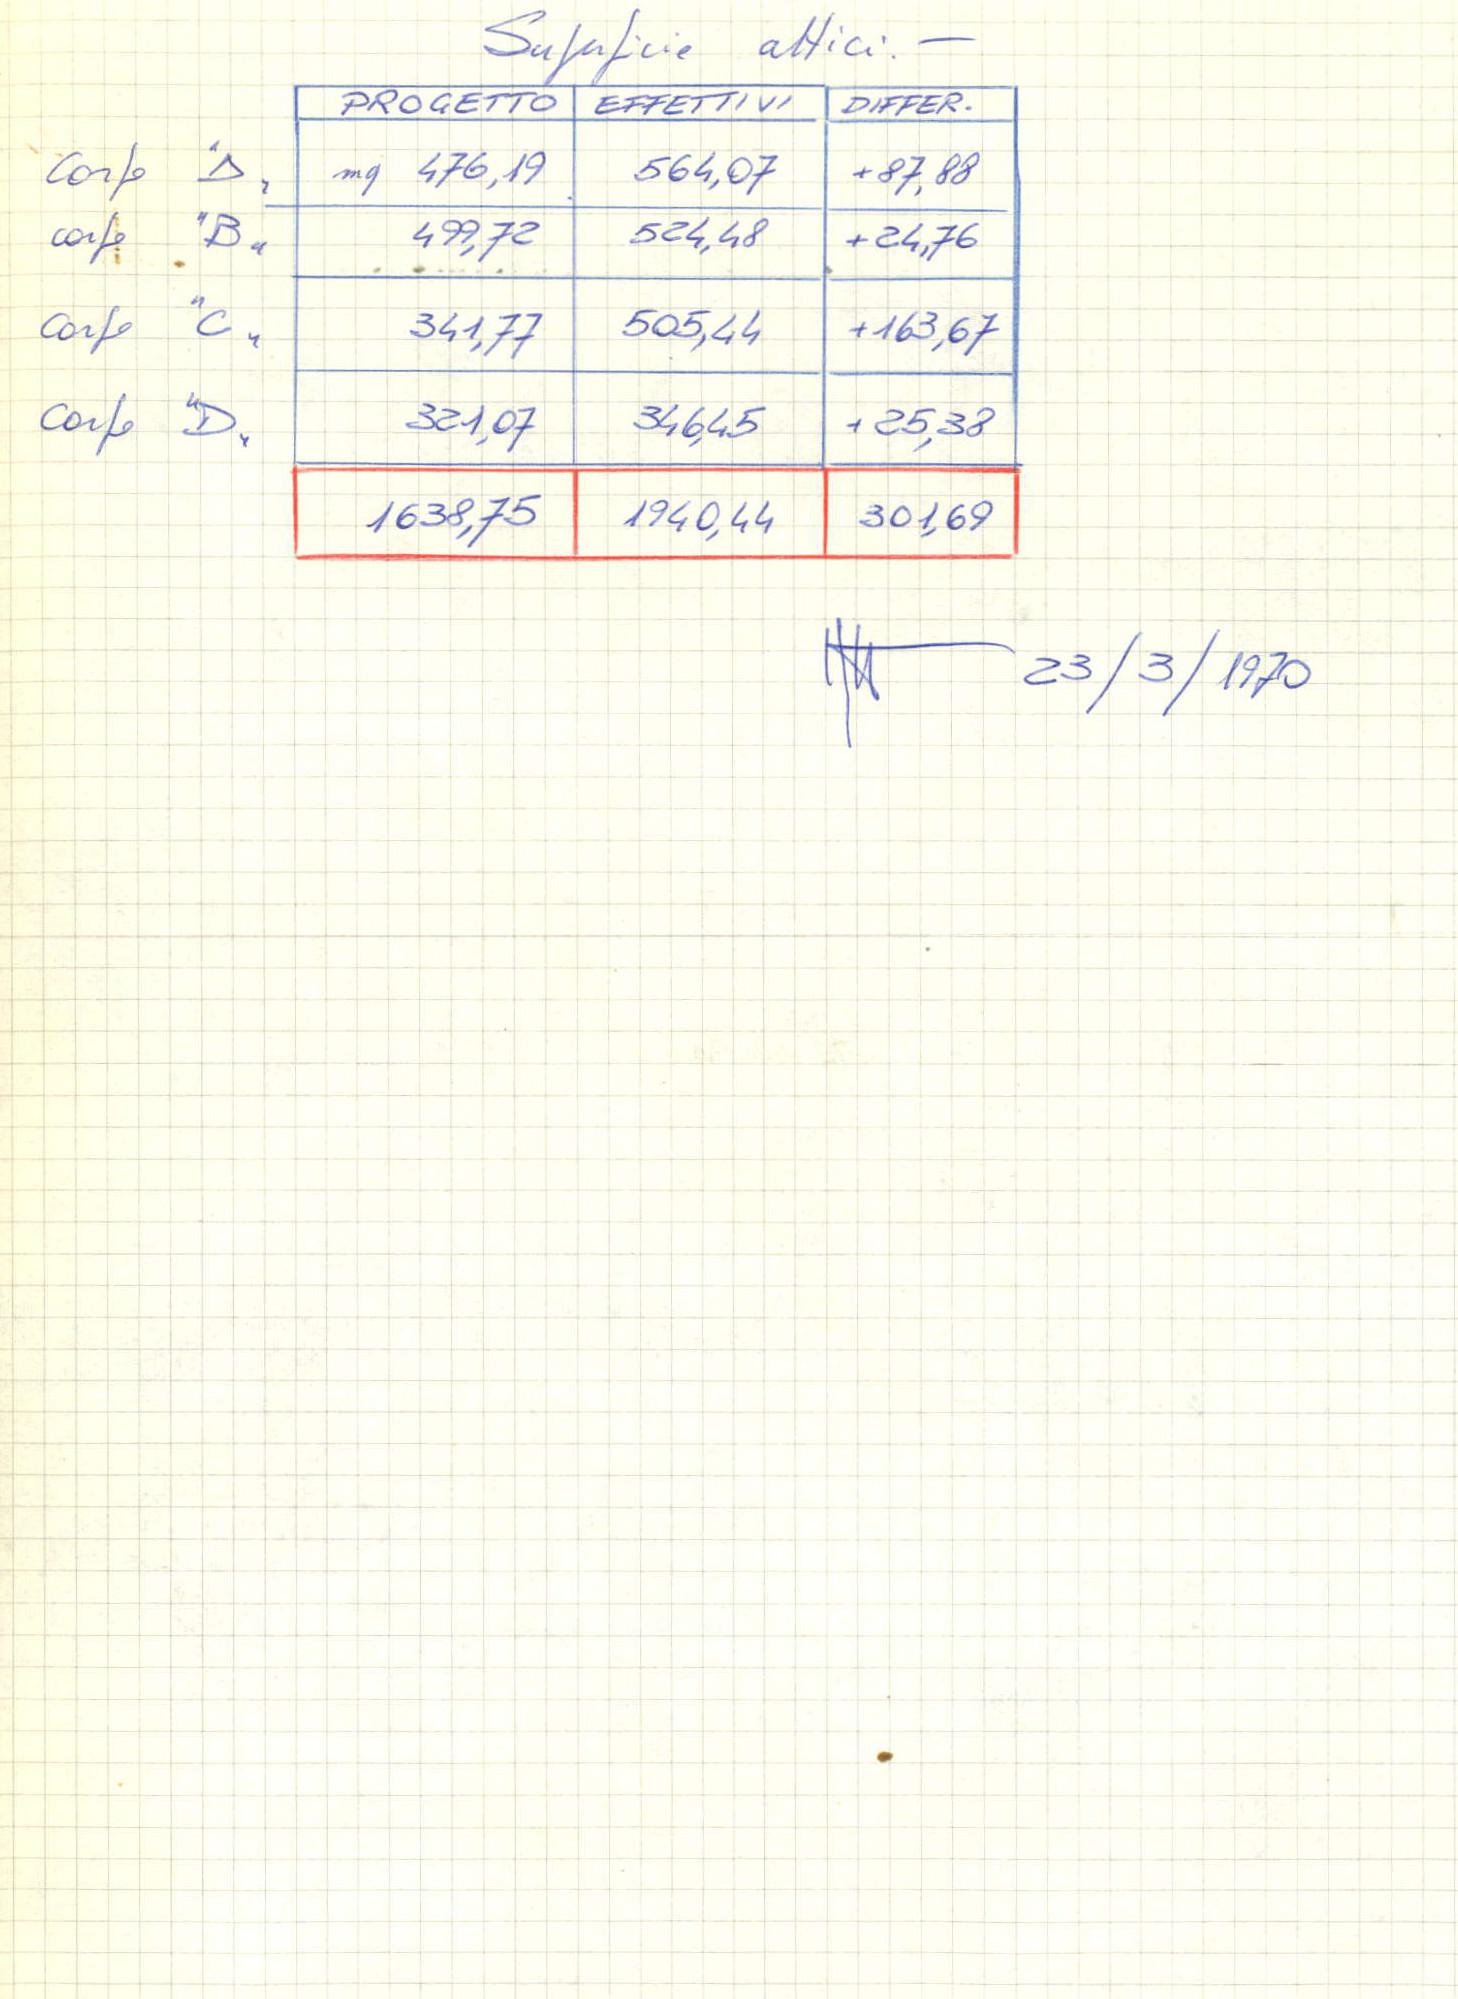 Superficie attici. —
PROGETTO EFFETTIVI DIFFER.
Corpo "A" mq 476,19 564,07 +87,88
corpo "B" 499,72 524,48 +24,76
corpo "C" 341,77 505,44 +163,67
corpo "D" 321,07 346,45 +25,38
1638,75 1940,44 301,69
23/3/1970